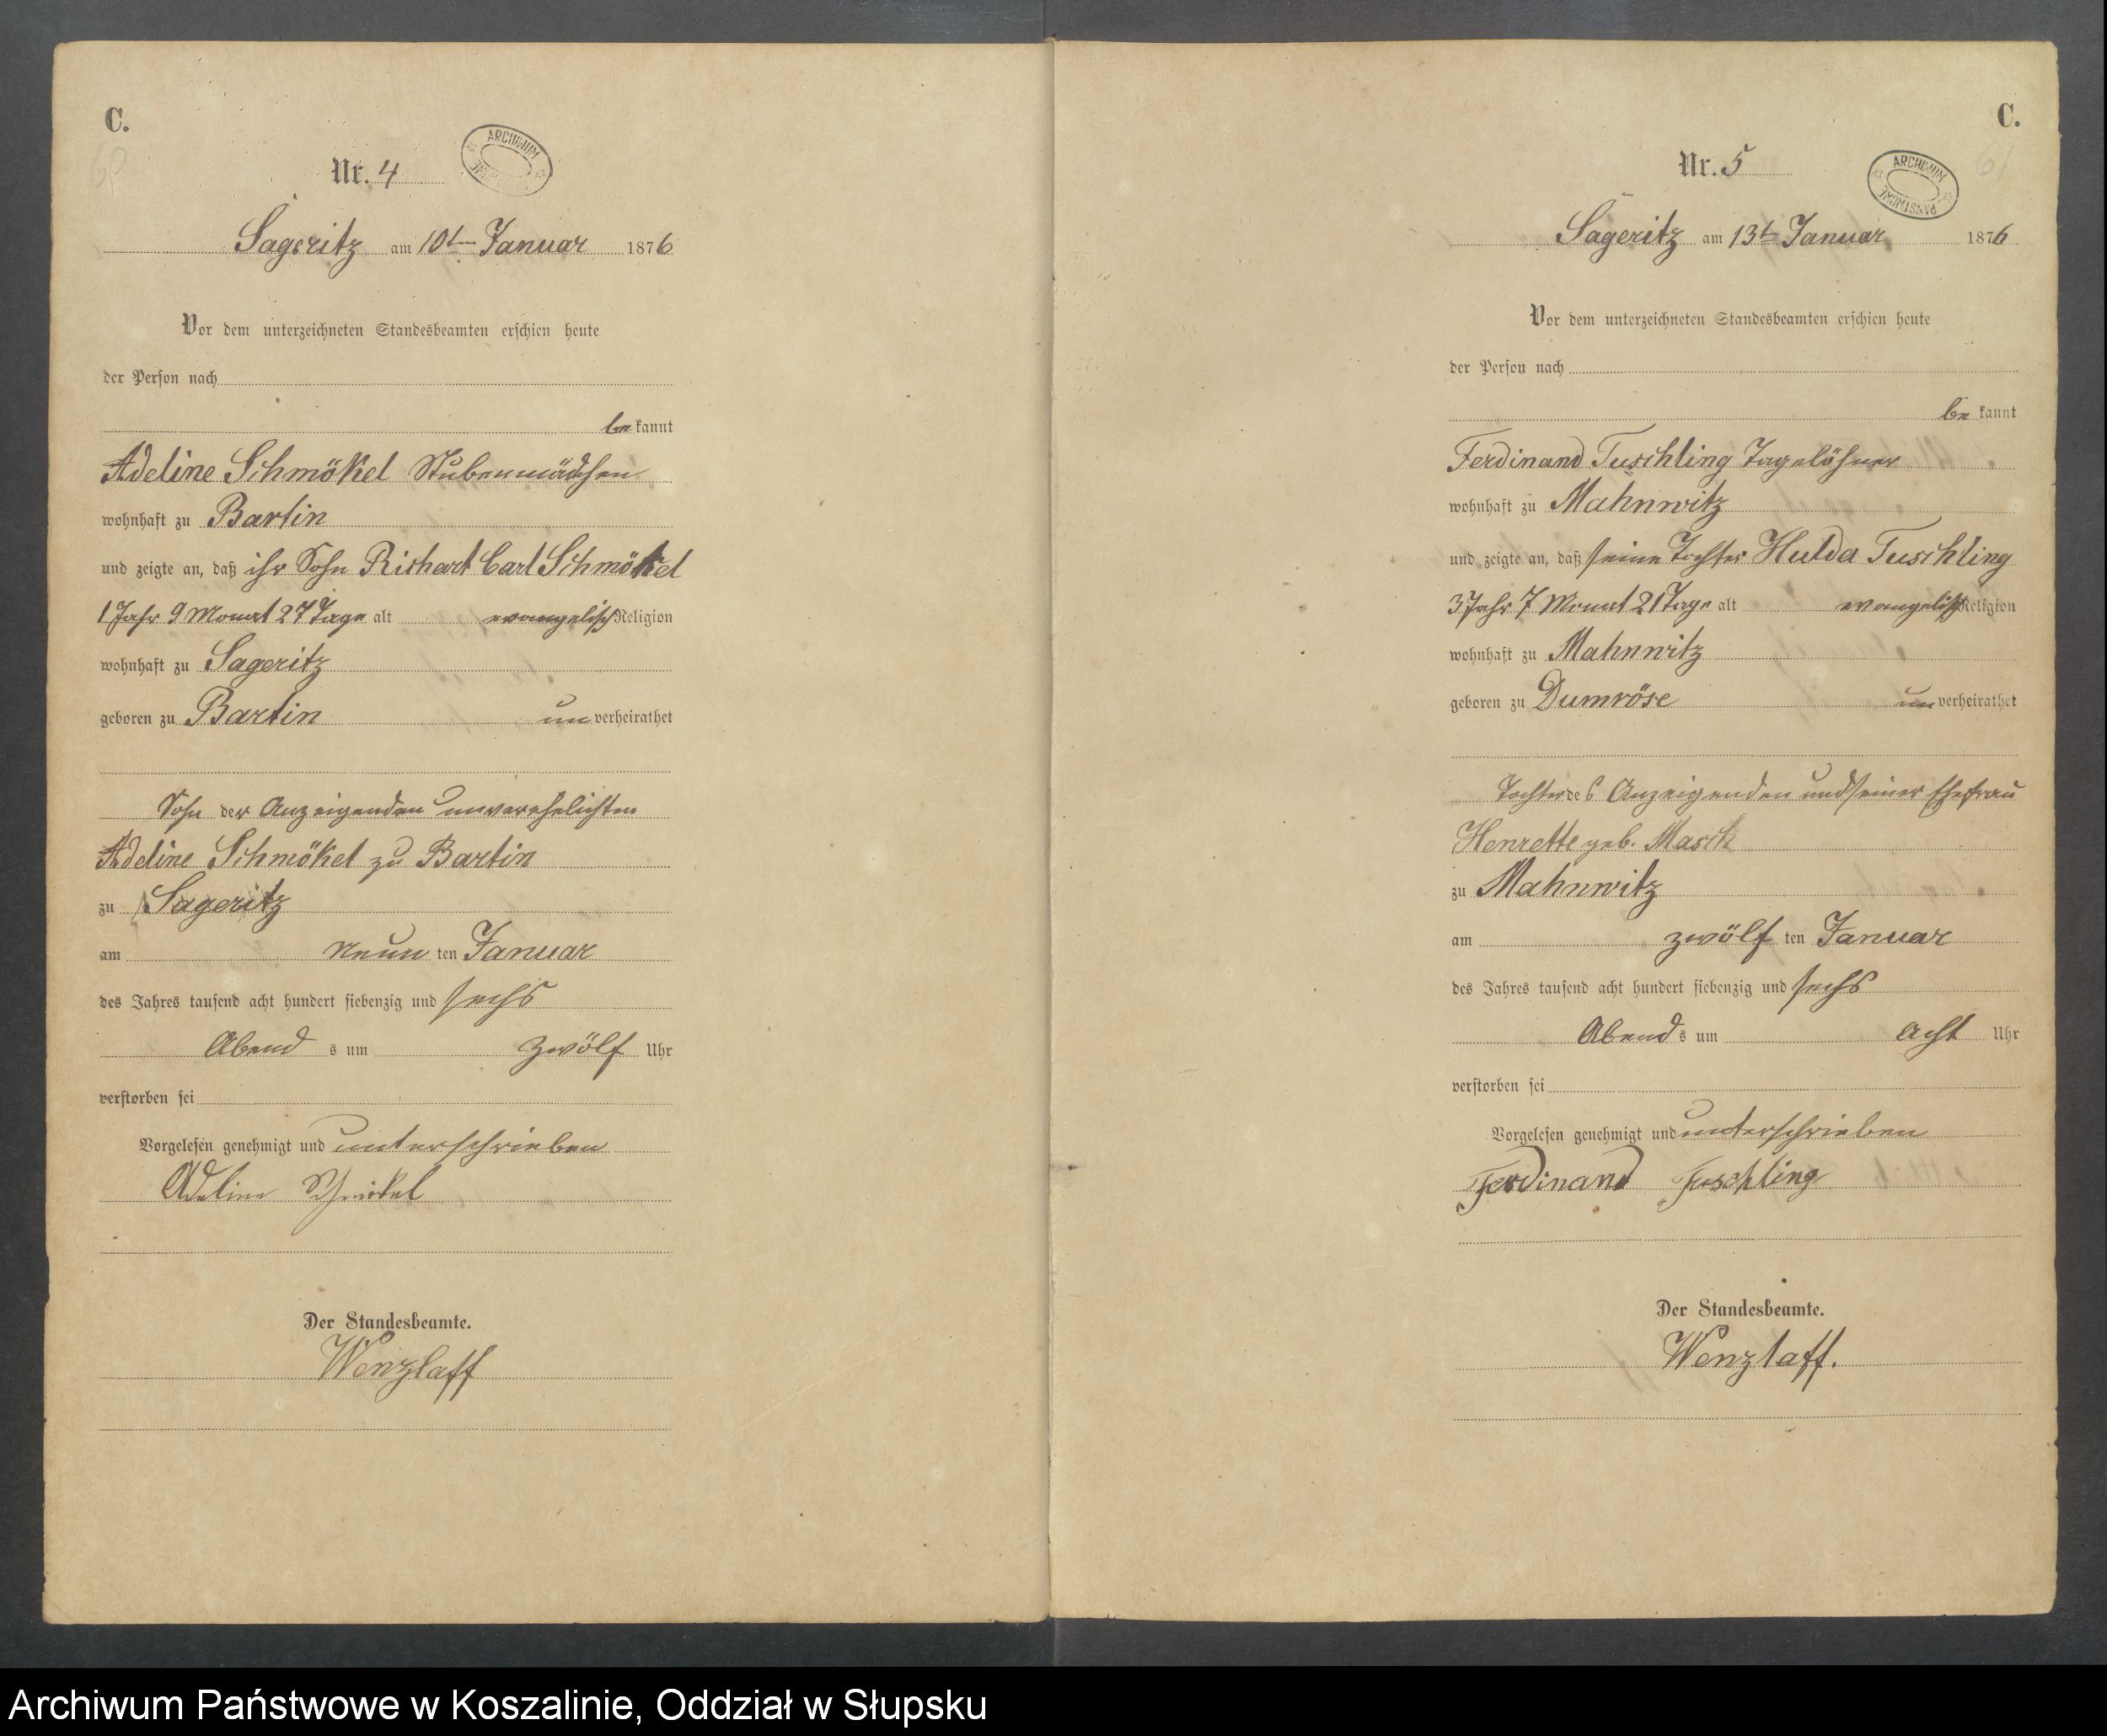 C.
Nr. 4
ARCHIWUM
Sageritz am 10t Januar 1876
Vor dem unterzeichneten Standesbeamten erschien heute
der Person nach
be kannt
Adeline Schmökel Stubenmädchen
wohnhaft zu Bartin
und zeigte an, daß ihr Sohn Richart Carl Schmökel
1 Jahr 9 Monat 27 Tage alt evangelisch Religion
wohnhaft zu Sageritz
geboren zu Bartin un verheirathet
Sohn der Anzeigenden unverehelichten
Adeline Schmökel zu Bartin
zu Sageritz
am neun ten Januar
des Jahres tausend acht hundert siebenzig und sechs
Abend s um zwölf Uhr
verstorben sei
Vorgelesen genehmigt und unterschrieben
Adeline Schmökel
Der Standesbeamte.
Wenzlaff
C.
61
Nr. 5
ARCHIWUM PAŃSTWOWE
Sageritz am 13t Januar 1876
Vor dem unterzeichneten Standesbeamten erschien heute
der Person nach
be kannt
Ferdinand Tuschling Tagelöhner
wohnhaft zu Mahnwitz
und zeigte an, daß seine Tochter Hulda Tuschling
3 Jahr 7 Monat 21 Tage alt evangelisch Religion
wohnhaft zu Mahnwitz
geboren zu Dumröse un verheirathet
Tochter des Anzeigenden und seiner Ehefrau
Henrette geb. Masch
zu Mahnwitz
am zwölf ten Januar
des Jahres tausend acht hundert siebenzig und sechs
Abend s um acht Uhr
verstorben sei
Vorgelesen genehmigt und unterschrieben
Ferdinand Tuschling
Der Standesbeamte.
Wenzlaff.
Archiwum Państwowe w Koszalinie, Oddział w Słupsku